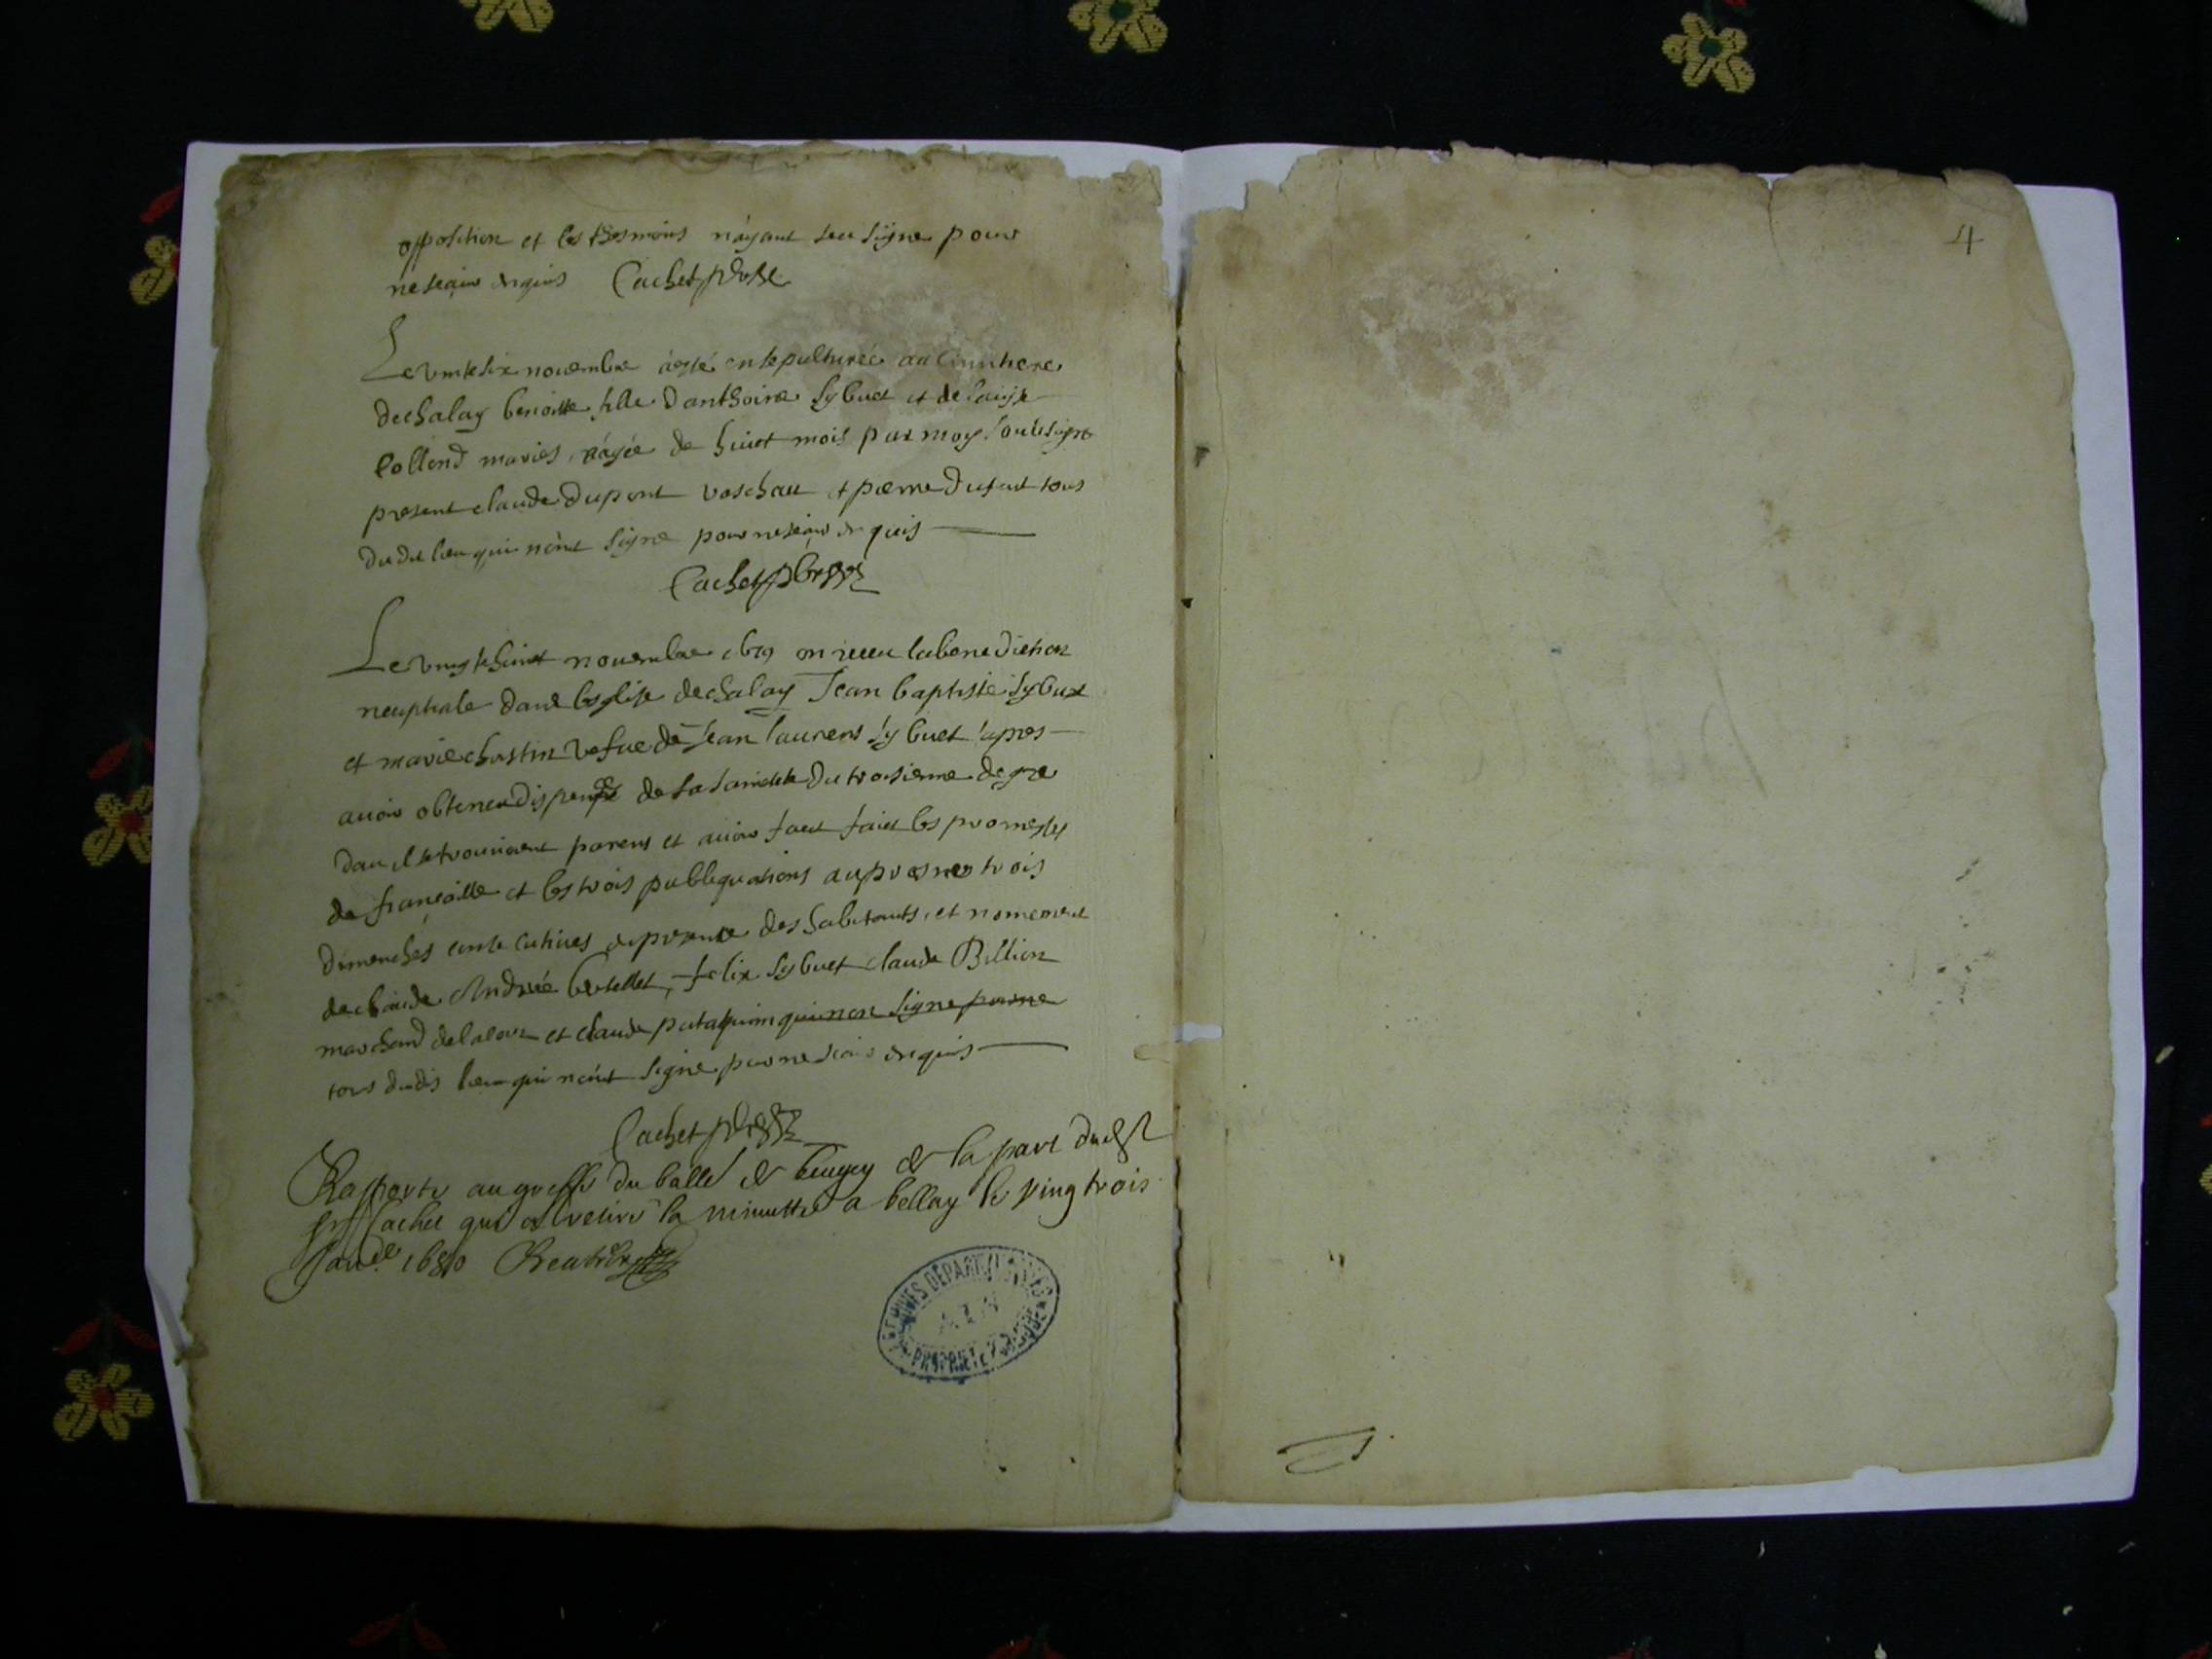 opposition et les thesmoins nâyant seu signe pour
ne scavoir enquis Cachet
Le vintesix novembre à esté ensepulturée au cimitiere
de chalay benoitte fille d'anthoine Sybuet et de
Collond mariés, âgée de huict mois par moy soubsigne
present claude dupont et pierre dufait tous
du dit lieu qui nônt signe pour ne scavoir enquis
Cachet
Le vingtehuict novembre 1679 on receu la benediction
neuptiale dans lesglise de chalay Jean baptiste Sybuet
et marie chastin vefve de Jean laurens Sybuet apres
avoir obtenu dispense de sa saincteté du troisieme degre
dou il se trouvoient parens et avoir faict les promesses
de fiançaille et les trois publiquations au prosnes trois
dimenches consecutives en presence des habitants, et nomement
de claude Andrée bertellet, felix Sybuet claude Billion
marchand de lacour et claude pataquim qui non signe pour ne
tous dudis lieu qui nônt signe pour ne scavoir enquis
Cachet
Rapporte au greffe du balle de beugey de la part dudit
Sr Cachet qui a retire la minutte a bellay le vingtrois
Janv. 1680
ARCHIVES DÉPARTEMENTALES
AIN
PROPRIÉTÉ PUBLIQUE
4